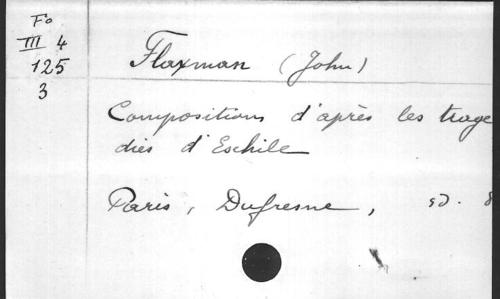 Fo
III 4
125
3
Flaxman (John)
Compositions d'après les trage
dies d'Eschile
Paris, Dufresne, sd. 8